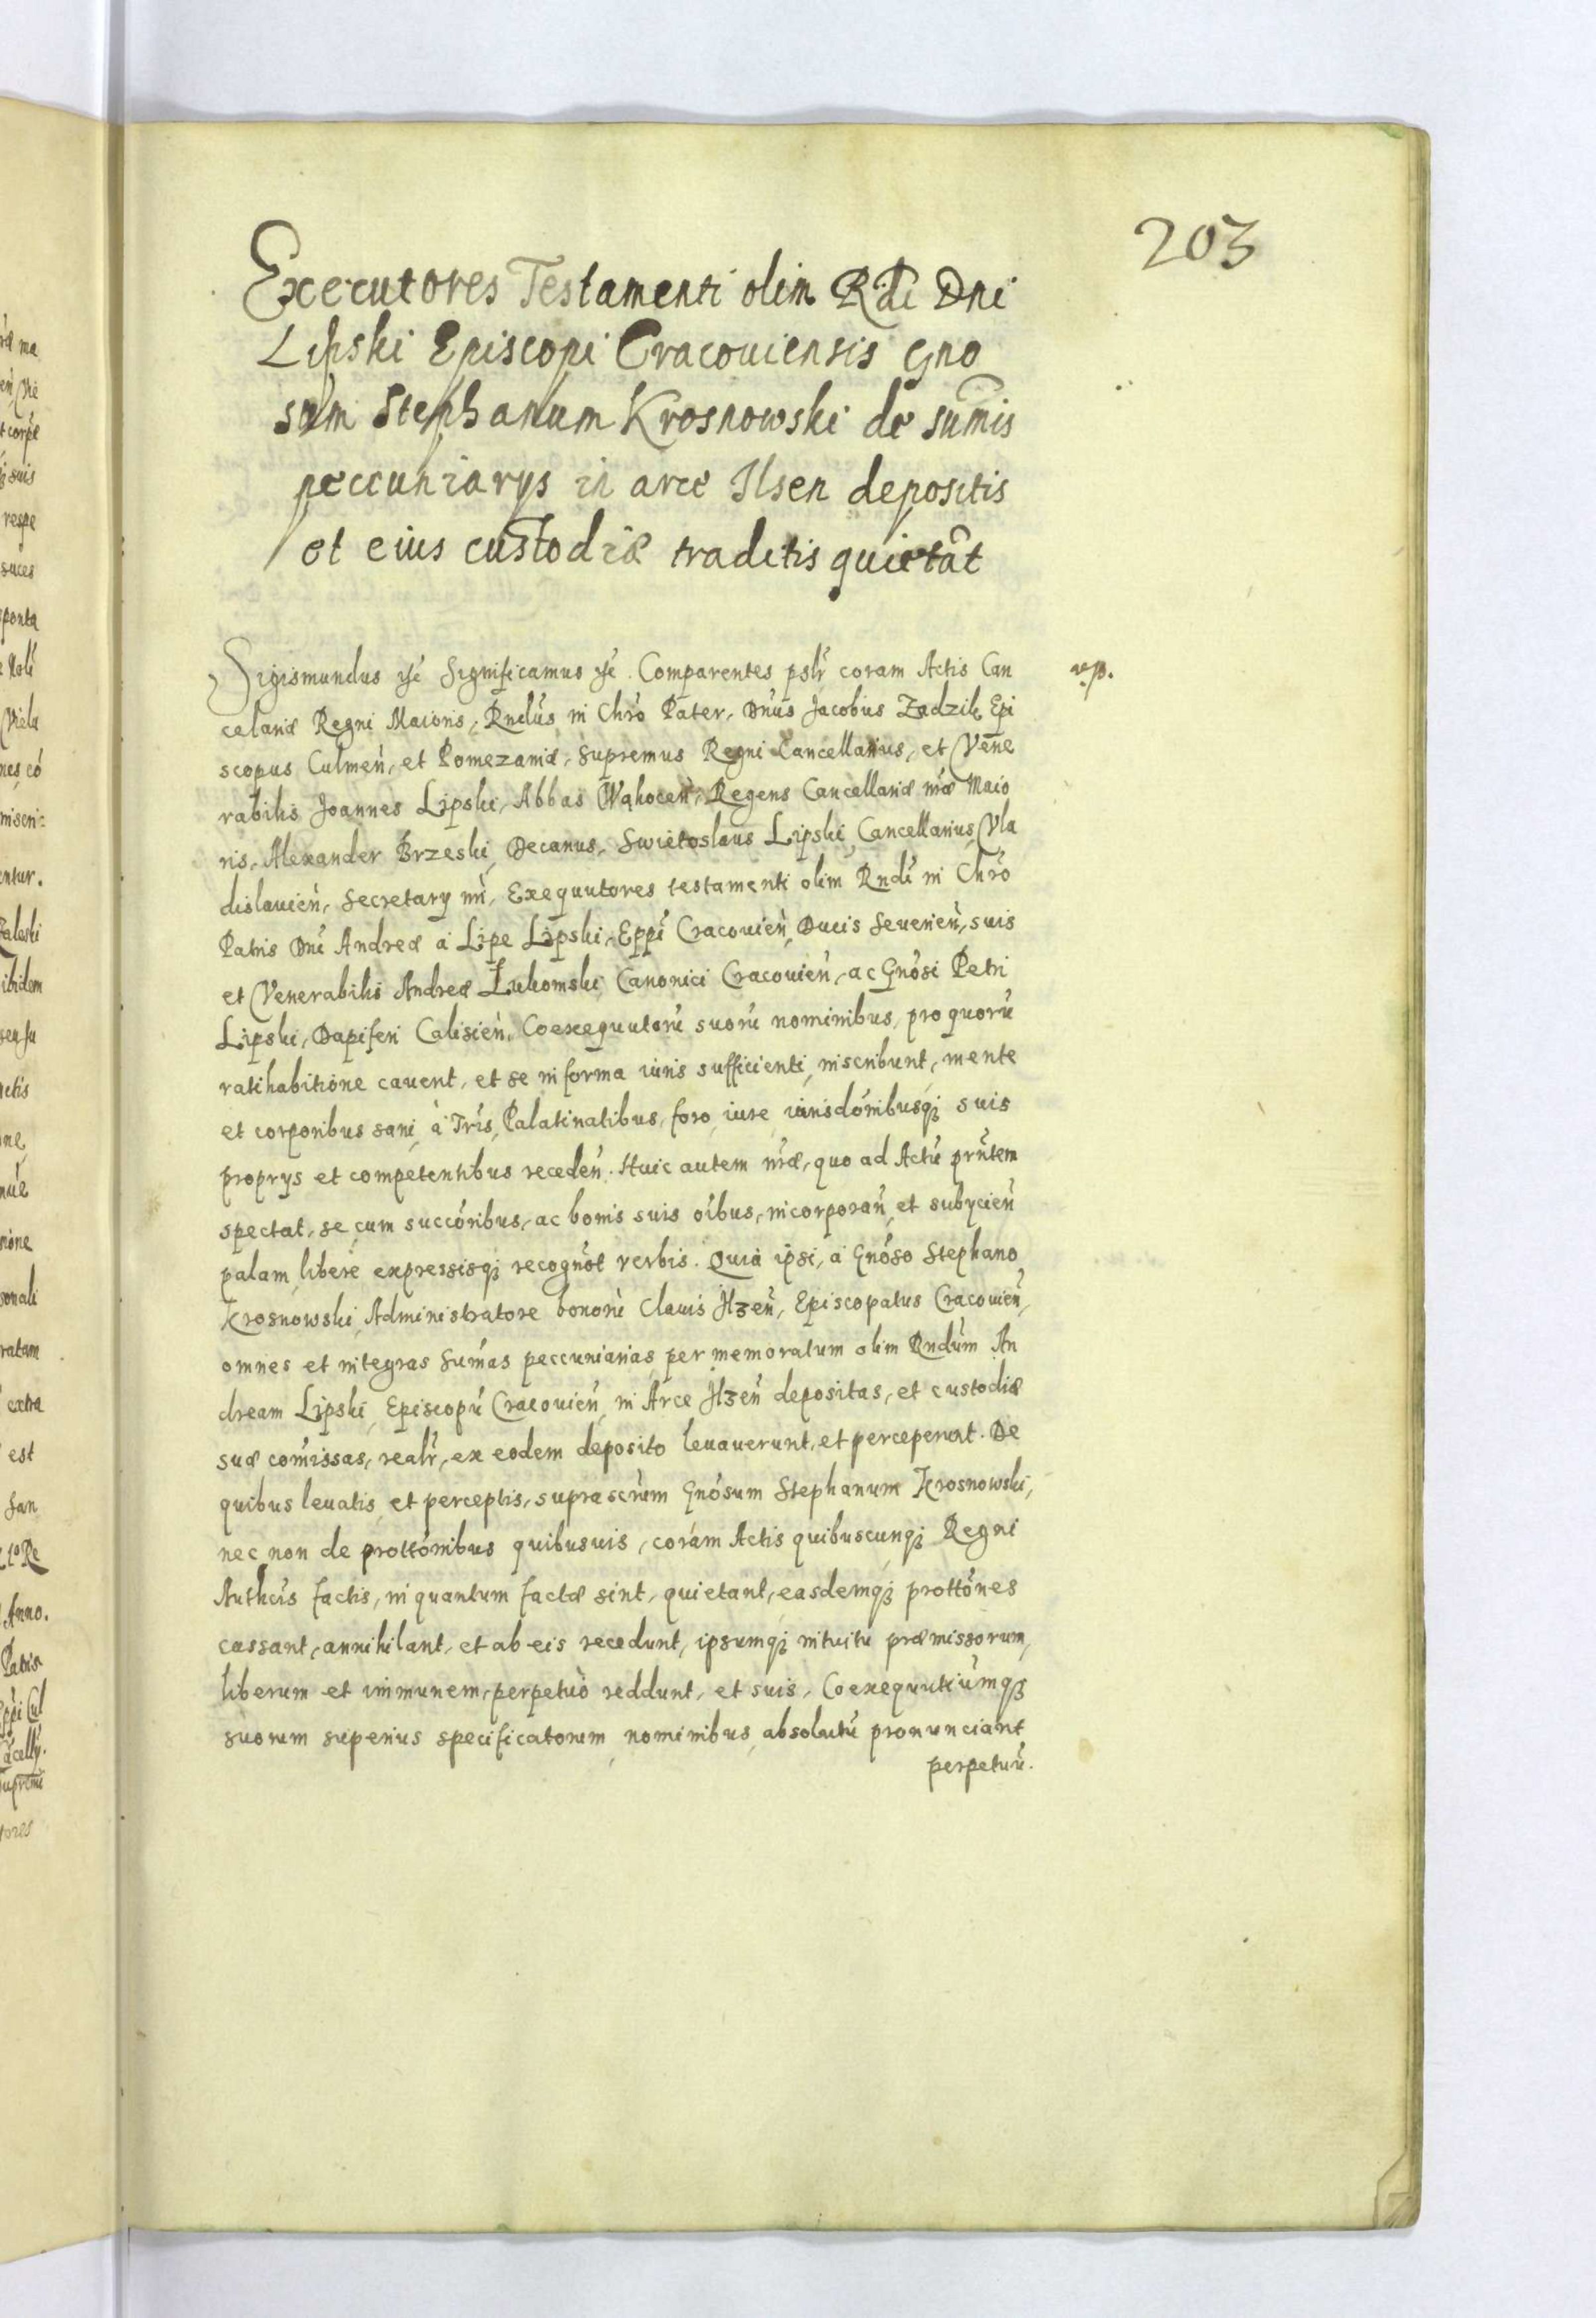 203
Executores Testamenti olim Rdi Dni
Lipski Episcopi Cracouiensis Gno
sum Stephanum Krosnowski de sumis
peccuniarys in arce Ilsen depositis
et eius custodiæ traditis quietāt
Sigismundus etc̃ Significamus etc̃. Comparentes pslr̃ coram Actis Can
celariæ Regni Maioris, Rndũs in Chrõ Pater, Dnũs Jacobus Zadzik Epi
scopus Culmeñ, et Pomezaniæ, Supremus Regni Cancellarius, et Vene
rabilis Joannes Lipski, Abbas Wąhoceñ, Regens Cancellariæ nrǣ Maio
ris, Alexander Brzeski, Decanus, Swietoslaus Lipski, Cancellarius Vla
dislauieñ, Secretary nrĩ, Exequutores testamenti olim Rndĩ in Chrõ
Patris Dnĩ Andreæ à Lipe Lipski, Eppĩ Cracouieñ, Ducis Seuerieñ, suis
et Venerabilis Andreæ Łukomski Canonici Cracouieñ, ac Gnõsi Petri
Lipski, Dapiferi Calisieñ, Coexequutorũ suorũ nominibus, pro quorũ
ratihabitione cauent, et se in forma iuris sufficienti, inscribunt, mente
et corporibus sani, à Trĩs, Palatinatibus, foro, iure, iurisdõnibusq; suis
proprys et competentibus recedeñ. Huic autem nrǣ, quo ad Actũ prñtem
spectat, se cum succõribus, ac bonis suis oĩbus, incorporañ, et subycieñ
palam, liberè expressisq; recognõt verbis. Quia ipsi, à Gnõso Stephano
Krosnowski, Administratore bonorũ Clauis Ilzeñ, Episcopatus Cracouieñ,
omnes et integras sum̃as peccuniarias, per memoratum olim Rndũm An
dream Lipski, Episcopũ Cracouieñ, in Arce Ilzeñ depositas, et custodiæ
suæ com̃issas, realr̃, ex eodem deposito leuauerunt, et perceperunt. De
quibus leuatis, et perceptis, suprascrũm Gnõsum Stephanum Krosnowski,
nec non de prottõnibus quibusuis, coram Actis quibuscunq; Regni
Authcĩs factis, in quantum factæ sint, quietant, easdemq; prottõnes
cassant, annihilant, et ab eis recedunt, ipsumq; intuitu præmissorum,
liberum et immunem, perpetuò reddunt, et suis, Coexequutiũmq;
suorum superius specificatorum, nominibus, absolutũ pronunciant
perpetuũ.